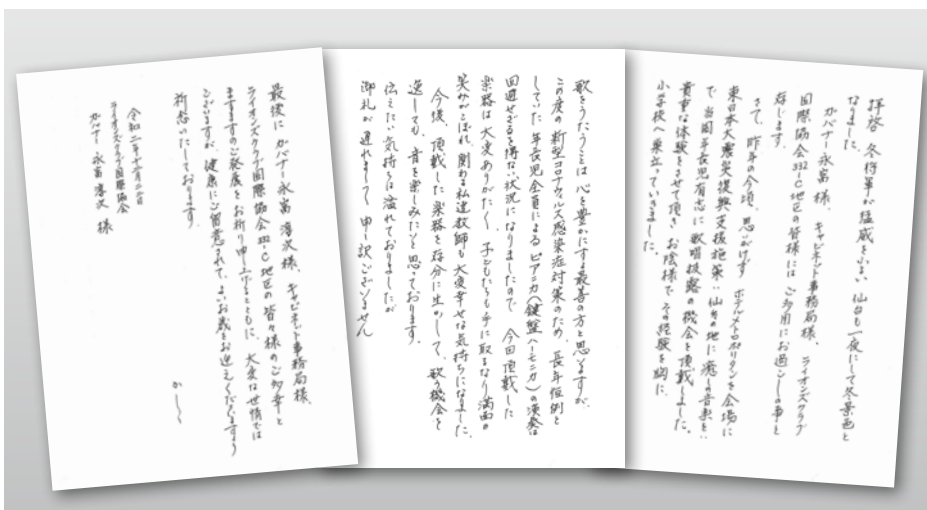 拝啓 冬将軍が猛威を小よい 仙台も一夜にして冬景色と
なりました。
ガバナー永富様、キャビネット事務局様、ライオンズクラブ
国際協会332-C地区の皆様には ご多用にお過ごしの事と
存じます。
さて、昨年の今頃、思いがけず ホテルメトロポリタンを会場に
東日本大震災復興支援施策:仙台の地に癒しの音楽を:
で 当園年長児有志に 歌唱披露の機会を頂戴しました。
貴重な体験をさせて頂き、お陰様で その経験を胸に、
小学校へ巣立っていきました。
歌をうたうことは 心を豊かにする最善の方と思いますが、
この度の新型コロナウィルス感染症対策のため、長年恒例と
していた 年長児全員による ピアニカ(鍵盤ハーモニカ)の演奏は
回避せざるを得ない状況になりましたので 今回頂戴した
楽器は大変ありがたく、子どもたちも手に取るなり満面の
笑みがこぼれ、関わる私達教師も大変幸せな気持ちになりました。
今後、頂戴した楽器を存分に生かして、歌の機会を
逸しても、音を楽しみたいと思っております。
伝えたい気持ちは溢れておりましたが
御礼が遅れまして 申し訳ございません
最後に ガバナー永富 淳次 様、キャビネット事務局様、
ライオンズクラブ国際協会332-C地区の皆々様のご多幸と
ますますのご発展を お祈り申し上げるとともに、大変な世情では
ございますが、健康にご留意されて、よいお歳をお迎えくださいますよう
祈念いたしております。
かしく
令和二年十二月二日
ライオンズクラブ国際協会
ガバナー 永富 淳次 様